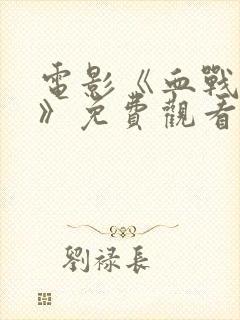 電影《血戰
》免費觀看
劉祿長